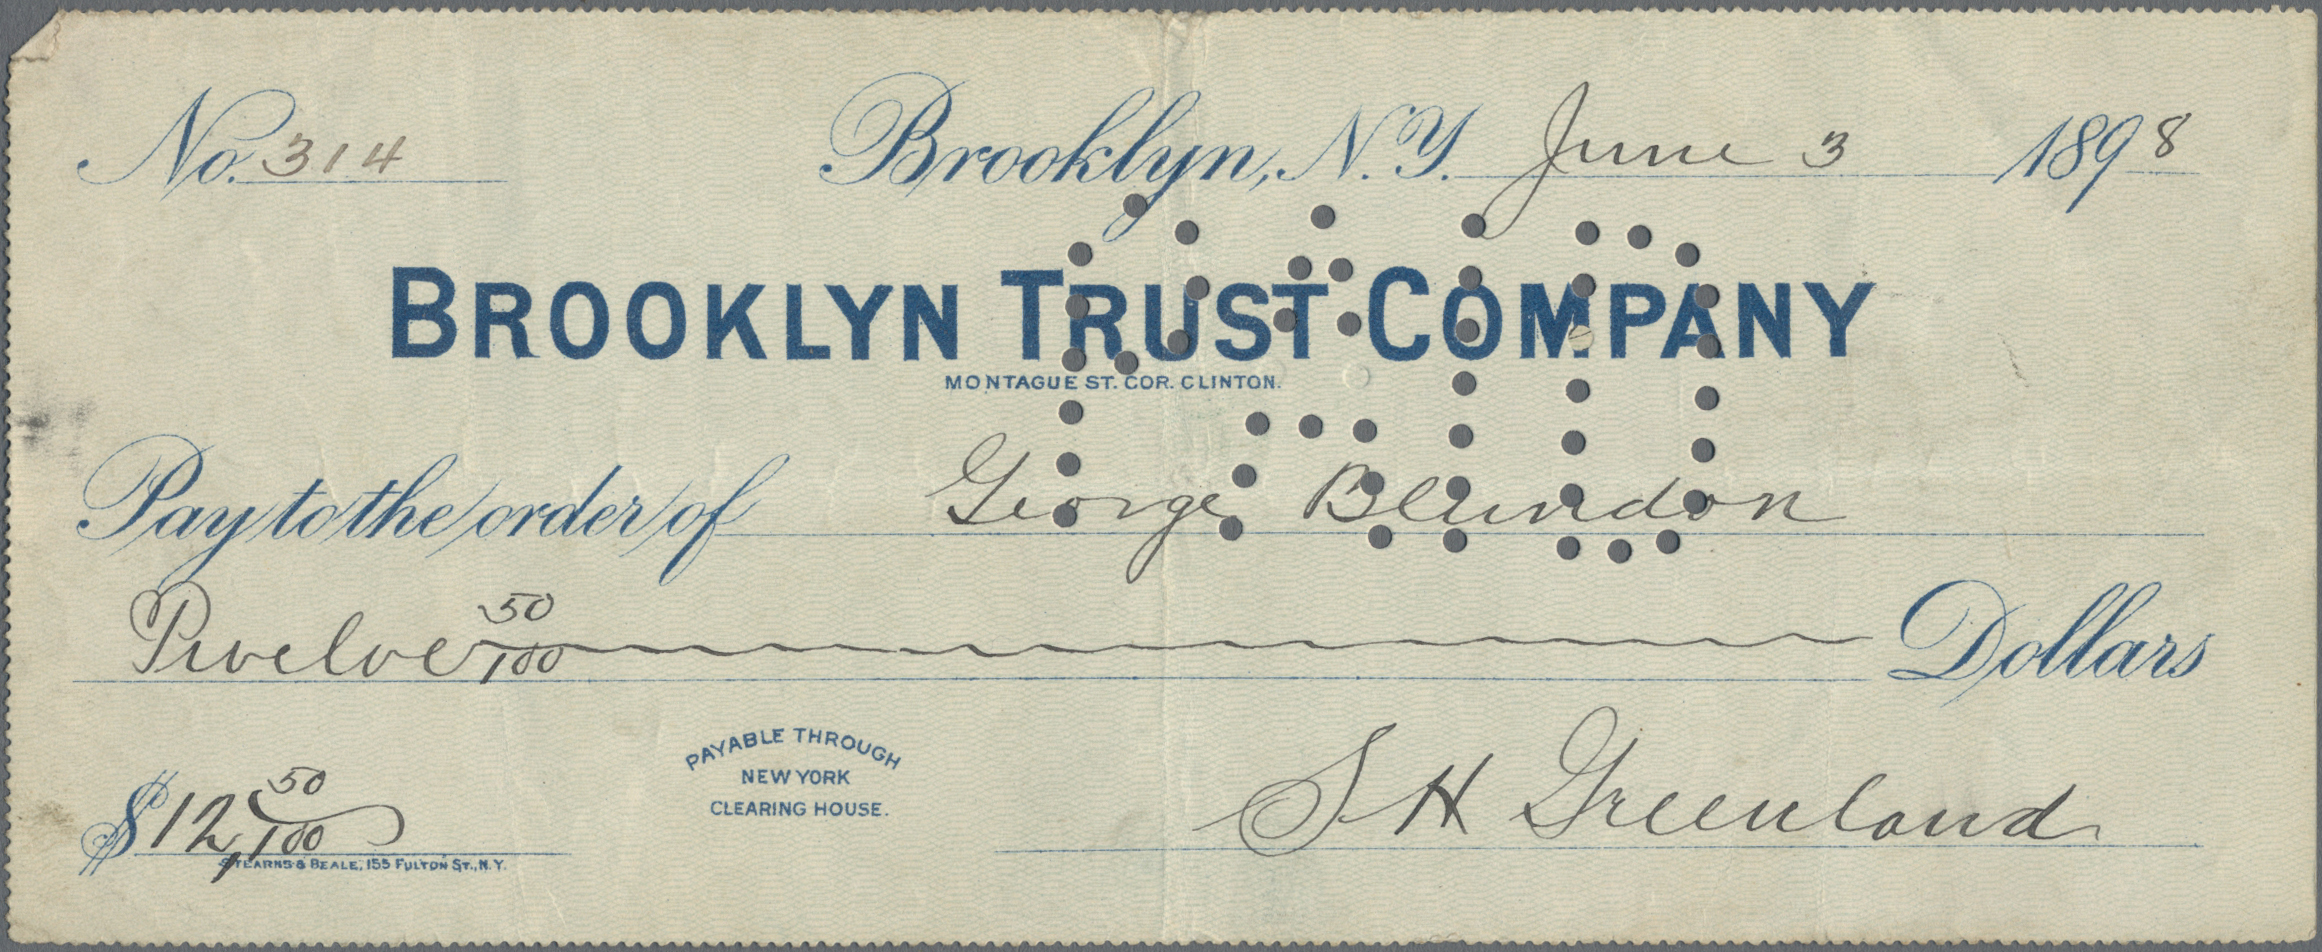 No. 314 Brooklyn, N.Y. June 3 1898
BROOKLYN TRUST COMPANY
MONTAGUE ST. COR. CLINTON.
PAID
Pay to the order of George Blundon
Twelve 50/100 Dollars
PAYABLE THROUGH
NEW YORK
CLEARING HOUSE.
$12, 50/100 S H Greenland
STEARNS & BEALE, 155 FULTON ST., N.Y.